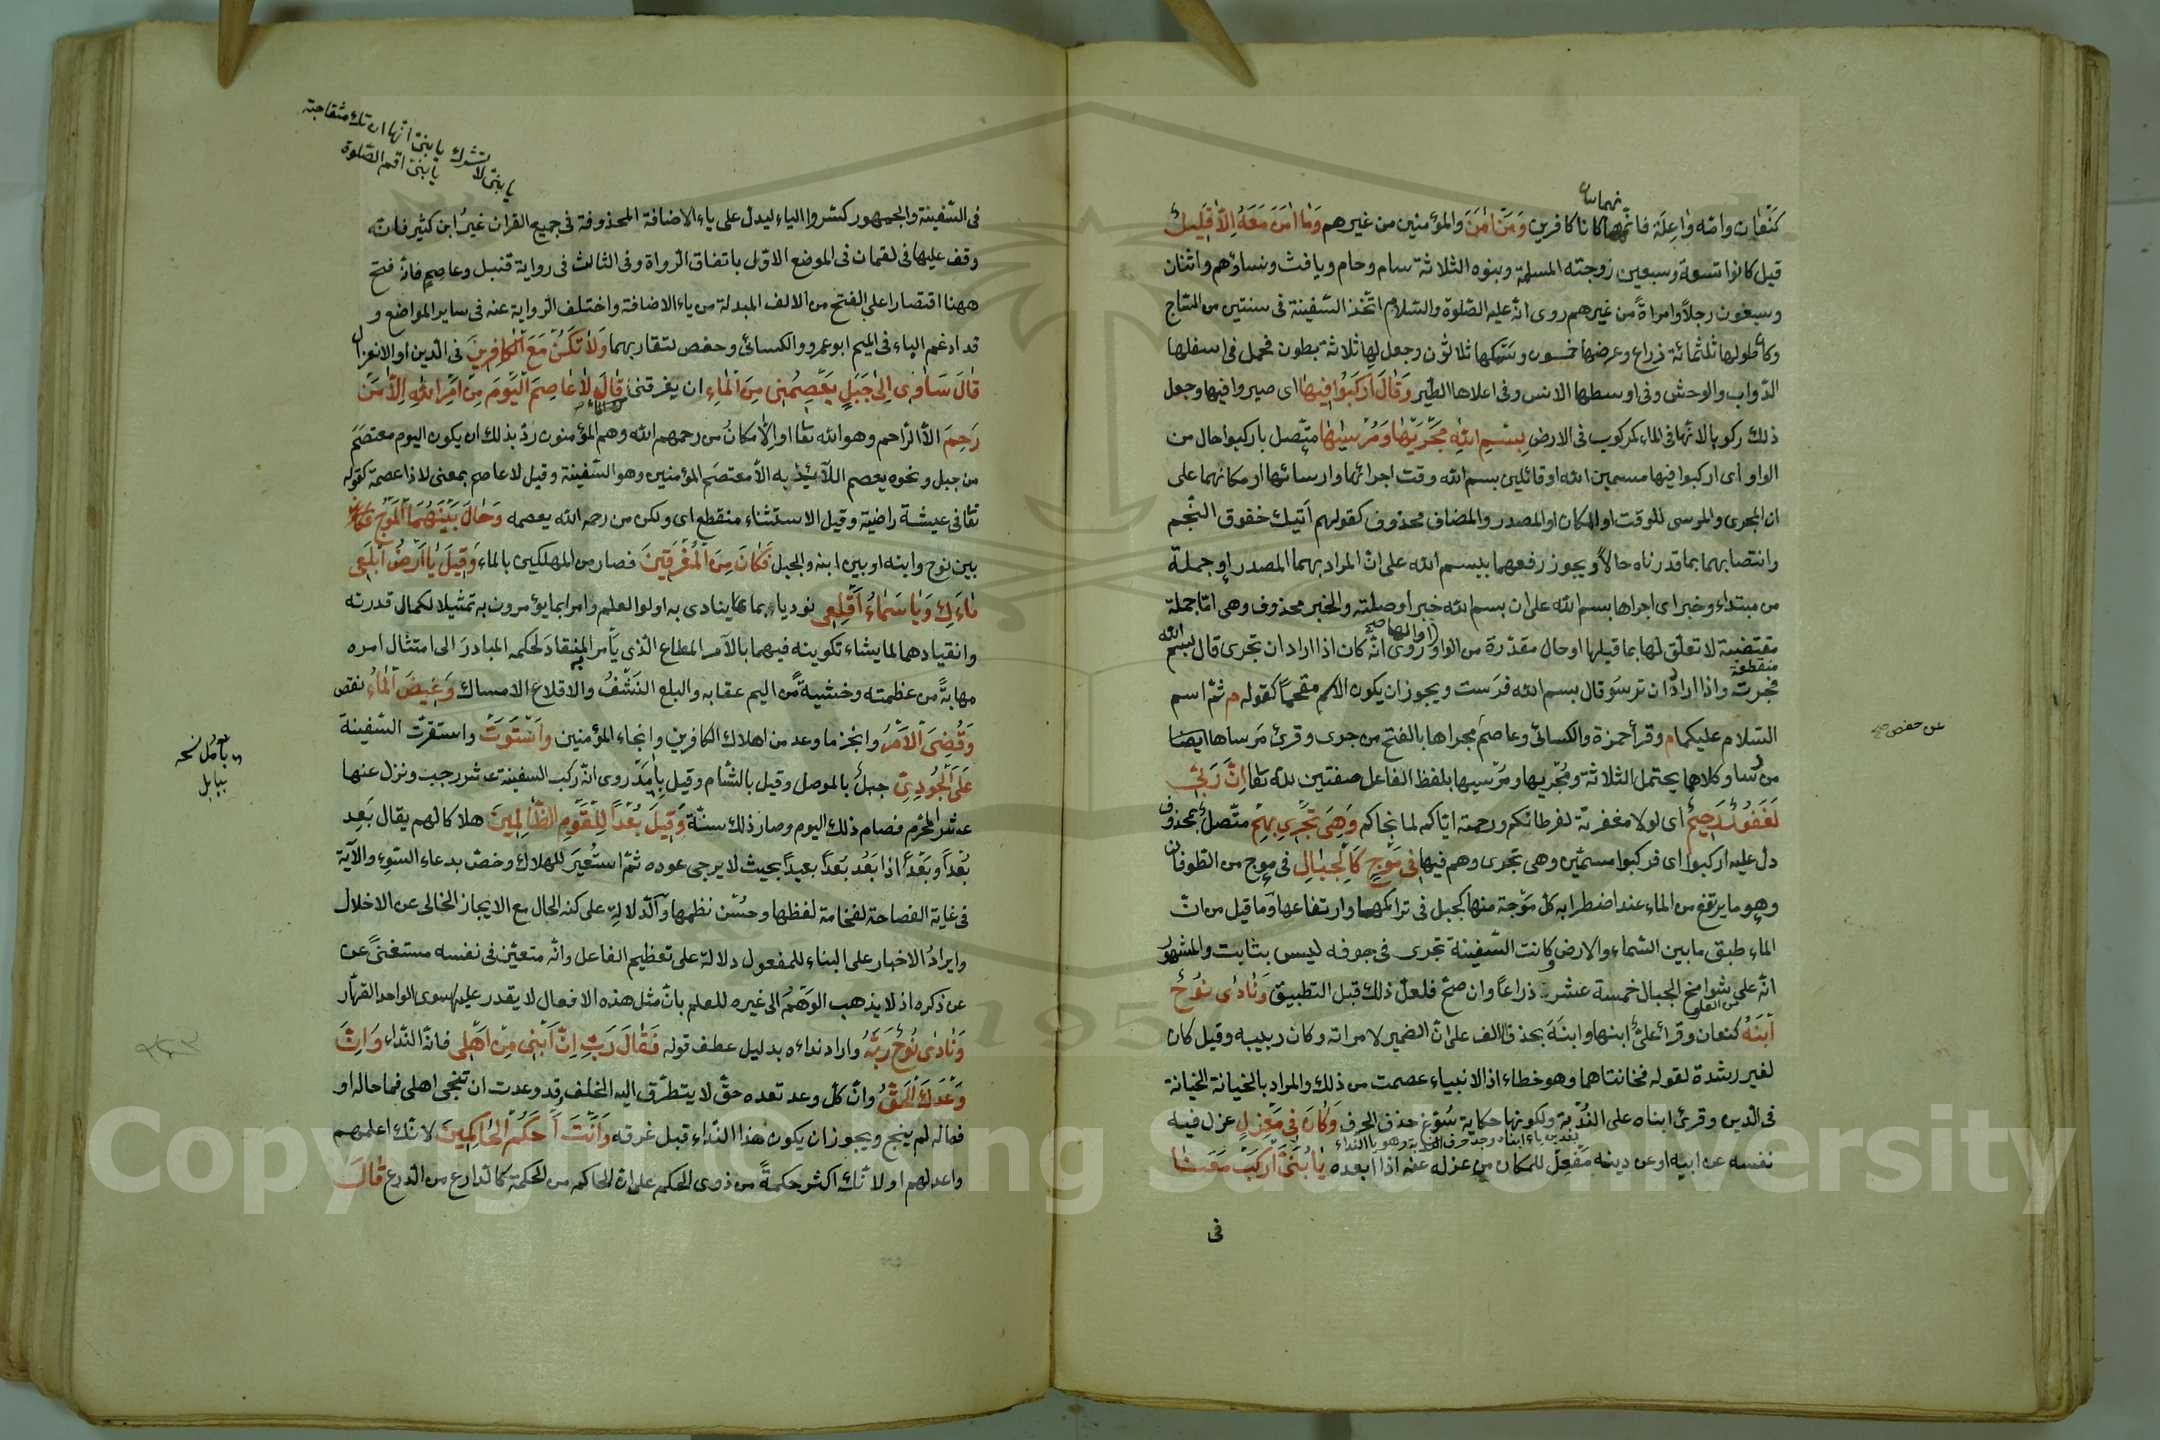 نهما
كنعان وامه واعلة فانهما كانا كافرين وَمَنْ اٰمَنَ والمؤمنين من غيرهم وَمٰا اٰمَنَ مَعَهُ اِلاّٰ قَلِيلٌ
قيل كانوا تسعة وسبعين زوجته المسلمة وبنوه الثلاثة سام وحام ويافث ونساؤهم واثنان
وسبعون رجلاً وامراةً من غيرهم روى انه عليه الصلوة والسلام اتخذ السفينة في سنتين من الساج
وكان طولها ثلثمائة ذراع وعرضها خمسون وسمكها ثلاثون وجعل لها ثلاثة بطون فحمل في اسفلها
الدواب والوحش وفي اوسطها الانس وفي اعلاها الطير وَقٰالَ ارْكَبُوا فِيهٰا اى صيروا فيها وجعل
ذلك ركوبا لانها في الماء كمركوب في الارض بِسْمِ اللهِ مَجْرٰيهٰا وَمُرْسٰيهٰا متصل باركبوا حال من
الواو اى اركبوا فيها مسمين الله او قائلين بسم الله وقت اجرائها وارسائها او مكانهما على
ان المجرى والمرسى للوقت او المكان او المصدر والمضاف محذوف كقولهم آتيك خفوق النجم
وانتصابهما بما قدرناه حالاً ويجوز رفعهما ببسم الله على ان المراد بهما المصدر او جملة
من مبتداء وخبر اى اجراها بسم الله على ان بسم الله خبر او صلته والخبر محذوف وهى اما جملة
مقتضبة لا تعلق لها بما قبلها او حال مقدرة من الواو او الها صح روى انه كان اذا اراد ان تجرى قال بسم الله
منقطعة
فجرت واذا اراد ان ترسو قال بسم الله فرست ويجوز ان يكون الاسم مقحماً كقوله م ثم اسم
السلام عليكما م وقرأ حمزة والكسائى وعاصم مجراها بالفتح من جرى وقرئ مرساها ايضا
عن حفص صح
من رسا وكلاهما يحتمل الثلاثة ومُجْريها ومُرْسيها بلفظ الفاعل صفتين لله تعا اِنَّ رَبِّى
لَغَفُورٌ رَحِيمٌ اى لولا مغفرته لفرطاتكم ورحمته اياكم لما نجاكم وَهِىَ تَجْرِى بِهِمْ متصل بمحذوف
دل عليه اركبوا اى فركبوا مسمين وهى تجرى وهم فيها فِى مَوْجٍ كَالْجِبٰالِ فى موج من الطوفان
وهو ما يرتفع من الماء عند اضطرابه كل موجة منها كجبل فى تراكمها وارتفاعها وما قيل من ان
الماء طبق ما بين السماء والارض وكانت السفينة تجرى فى جوفه ليس بثابت والمشهور
انه على شوامخ الجبال خمسة عشر ذراعاً وان صح فلعل ذلك قبل التطبيق وَنٰادٰى نُوحٌ
ابْنَهُ كنعان وقرأ علىٌّ ابنها وابنهَ بحذف الالف على ان الضمير لامراته وكان ربيبه وقيل كان
لغير رشدة لقوله فخانتاهما وهو خطاء اذ الانبياء عصمت من ذلك والمراد بالخيانة الخيانة
فى الدين وقرئ ابناه على الندبة ولكونها حكاية سوغ حذف الحرف وَكٰانَ فِى مَعْزِلٍ عزل فيه
نفسه عن ابيه او عن دينه مَفْعِل للمكان من عزله عنه اذا ابعده يٰا بُنَىَّ ارْكَبْ مَعَنٰا
فى
يا بنى لا تشرك يا بنى انها ان تك مثقال حبة
يا بنى اقم الصلوة
فى السفينة والجمهور كسروا الياء ليدل على ياء الاضافة المحذوفة فى جميع القران غيرُ ابن كثير فانه
وقف عليها فى لقمان فى الموضع الاول باتفاق الرواة وفى الثالث فى رواية قنبل وعاصمٍ فانه فتح
ههنا اقتصارا على الفتح من الالف المبدلة من ياء الاضافة واختلف الرواية عنه فى ساير المواضع و
قد ادغم الباء فى الميم ابو عمرو والكسائى وحفص لتقاربهما وَلاٰ تَكُنْ مَعَ الْكٰافِرِينَ فى الدين او الانعزال
قٰالَ سَاٰوِى اِلىٰ جَبَلٍ يَعْصِمُنِى مِنَ الْمٰاءِ ان يغرقنى قٰالَ لاٰ عٰاصِمَ الْيَوْمَ مِنْ اَمْرِ اللهِ اِلاّٰ مَنْ
رَحِمَ الا الراحم وهو الله تعا او الاّ مكانُ من رحمهم الله وهم المؤمنون رد بذلك ان يكون اليوم معتصَم
من جبل ونحوه يعصم اللائذ به الا معتصَم المؤمنين وهو السفينة وقيل لا عاصم بمعنى لا ذا عصمة كقوله
تعا فى عيشة راضية وقيل الاستثناء منقطع اى ولكن من رحمه الله يعصمه وَحٰالَ بَيْنَهُمَا الْمَوْجُ
بين نوح وابنه او بين ابنه والجبل فَكٰانَ مِنَ الْمُغْرَقِينَ فصار من المهلكين بالماء وَقِيلَ يٰا اَرْضُ ابْلَعِى
مٰاءَكِ وَيٰا سَمٰاءُ اَقْلِعِى نوديا بما ينادى به اولوا العلم وامرا بما يؤمرون به تمثيلا لكمال قدرته
وانقيادهما لما يشاء تكوينه فيهما بالآمر المطاع الذى يأمر المنقاد لحكمه المبادر الى امتثال امره
مهابةً من عظمته وخشيةً من اليم عقابه والبلع النشفُ والاقلاع الامساك وَغِيضَ الْمٰاءُ نقص
وَقُضِىَ الْاَمْرُ وانجز ما وعد من اهلاك الكافرين وانجاء المؤمنين وَاسْتَوَتْ واستقرت السفينة
عَلَى الْجُودِىِّ جبلٌ بالموصل وقيل بالشام وقيل بآمد روى انه ركب السفينة عاشر رجب ونزل عنها
بآمل نسخه
ببابل
عاشر المحرم فصام ذلك اليوم وصار ذلك سنة وَقِيلَ بُعْداً لِلْقَوْمِ الظّٰالِمِينَ هلاكا لهم يقال بَعِد
بُعْداً وبَعَداً اذا بَعُد بُعداً بعيداً بحيث لا يرجى عوده ثم استُعير للهلاك وخص بدعاء السوء والآية
فى غاية الفصاحة لفخامة لفظها وحسن نظمها والدلالة على كنه الحال مع الايجاز الخالى عن الاخلال
وايرادُ الاخبار على البناء للمفعول دلالة على تعظيم الفاعل وانه متعين فى نفسه مستغنىً عن
عن ذكره اذ لا يذهب الوهم الى غيره للعلم بان مثل هذه الافعال لا يقدر عليها سوى الواحد القهار
وَنٰادٰى نُوحٌ رَبَّهُ واراد نداءه بدليل عطف قوله فَقٰالَ رَبِّ اِنَّ ابْنِى مِنْ اَهْلِى فانه النداء وَاِنَّ
وَعْدَكَ الْحَقُّ وان كل وعد تعده حق لا يتطرق اليه الخلف وقد وعدت ان تنجى اهلى فما حاله او
فماله لم ينج ويجوز ان يكون هذا النداء قبل غرقه وَاَنْتَ اَحْكَمُ الْحٰاكِمِينَ لانك اعلمهم
واعدلهم او لانك اكثر حكمةً من ذوى الحكم على ان الحاكم من الحكمة كالدارع من الدرع قٰالَ
Copyright © King Saud University
1957